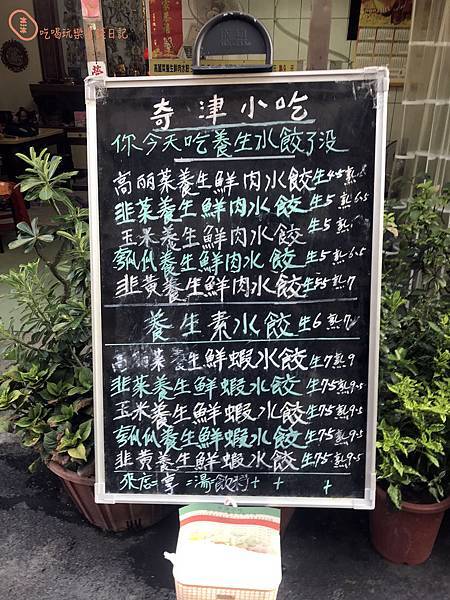 吃喝玩樂 日記
高麗菜養生鮮肉水餃
奇津小吃
你今天吃養生水餃了沒
高丽菜養生鮮肉水餃生4.5熟
韭菜養生鮮肉水餃生5熟6.5
玉米養生鮮肉水餃生5熟
瓠瓜養生鮮肉水餃生5熟6.5
韭黄養生鮮肉水餃生5.5熟7
養生素水餃生6熟7
高丽菜養生鮮蝦水餃生7熟9
韭菜養生鮮蝦水餃生7.5熟9.5
玉米養生鮮蝦水餃生7.5熟9.5
瓠瓜養生鮮蝦水餃生7.5熟9.5
韭黄養生鮮蝦水餃生7.5熟9.5
來店享=湯飲料+ + +